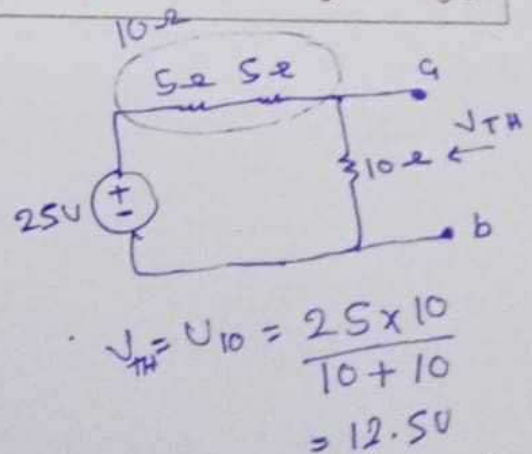 10Ω
5Ω 5Ω
a
25V
+
-
10Ω ← VTH
b
VTH = V10 = 25 × 10
10 + 10
= 12.5V